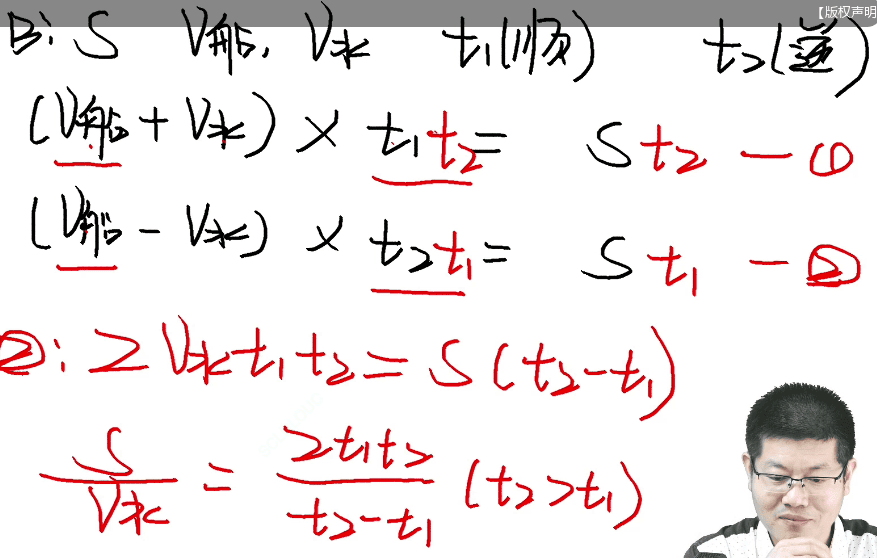 【版权声明
B: S V船, V水 t₁(顺) t₂(逆)
(V船 + V水) × t₁t₂ = St₂ — ①
(V船 - V水) × t₂t₁ = St₁ — ②
②: 2V水t₁t₂ = S(t₂-t₁)
S/V水 = 2t₁t₂/(t₂-t₁) (t₂>t₁)